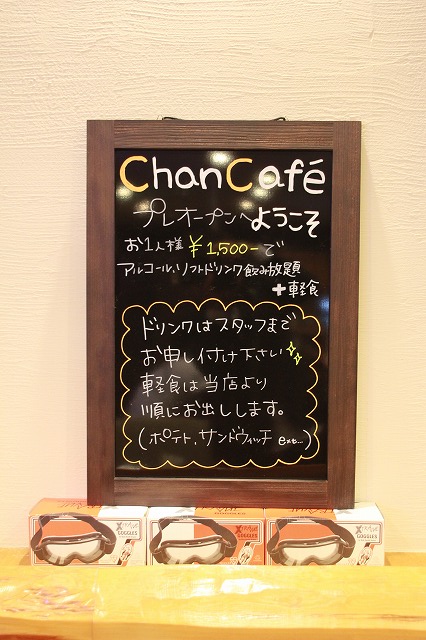 ChanCafé
プレオープンへようこそ
お1人様 ¥1,500-で
アルコール、ソフトドリンク飲み放題
+軽食
ドリンクはスタッフまで
お申し付け下さい
軽食は当店より
順にお出しします。
(ポテト、サンドウィッチ ext...)
GOGGLES
GOGGLES
GOGGLES